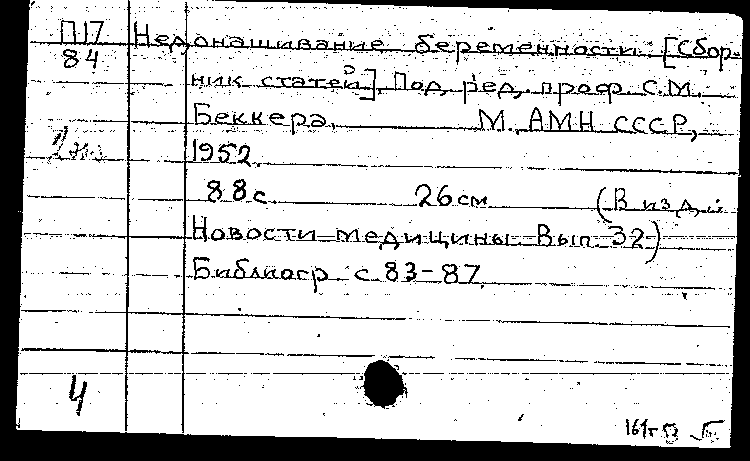 П17 Недонашивание беременности. [Сбор-
84 ник статей]. Под ред. проф. С.М.
Беккера. М., АМН СССР,
2 экз 1952.
88 с. 26 см. (В изд.:
Новости медицины. Вып. 32)
Библиогр. с. 83-87.
4